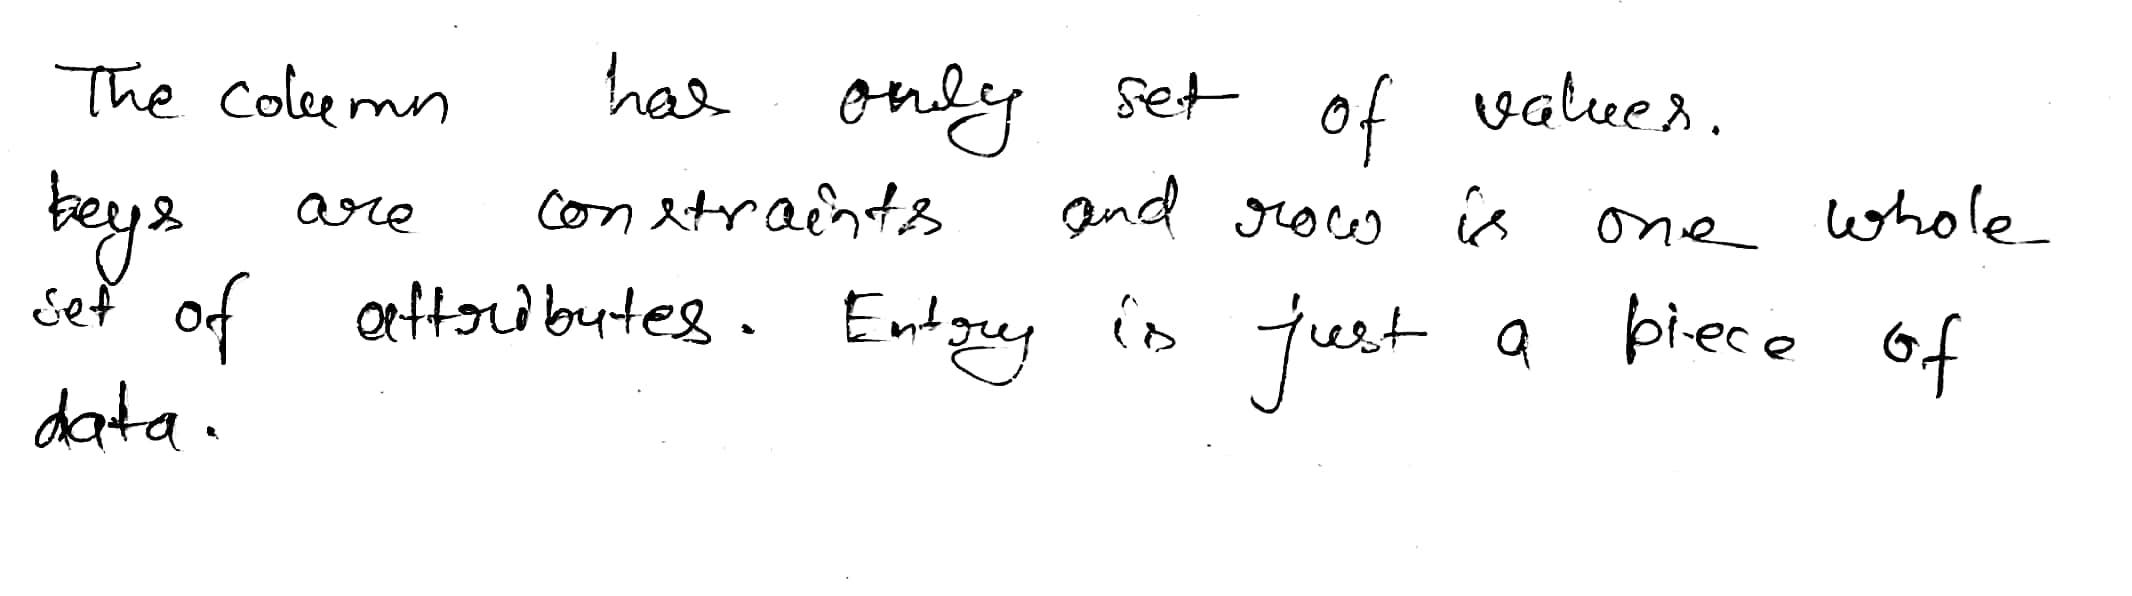 The column has only set of values.
keys are constraints and row is one whole
set of attributes. Entry is just a piece of
data.